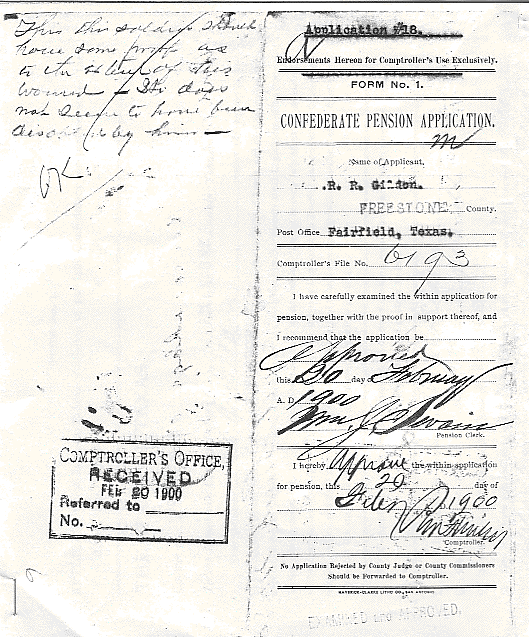 This this soldier should
have some proof as
to the extent of this
wound – It does
not seem to have been
disabled by him —
OK
Application #18.
Endorsements Hereon for Comptroller's Use Exclusively.
FORM No. 1.
CONFEDERATE PENSION APPLICATION.
Name of Applicant,
R. R. Gilden.
FREESTONE County.
Post Office Fairfield, Texas.
Comptroller's File No. 6193
I have carefully examined the within application for
pension, together with the proof in support thereof, and
I recommend that the application be
Approved
this 20 day February
A. D. 1900
Wm J Swain
Pension Clerk.
I hereby Approve the within application
for pension, this 20 day of
1900
Comptroller.
No Application Rejected by County Judge or County Commissioners
Should be Forwarded to Comptroller.
MAVERICK-CLARKE LITHO CO., SAN ANTONIO
EXAMINED and APPROVED.
COMPTROLLER'S OFFICE,
RECEIVED
FEB 20 1900
Referred to
No.